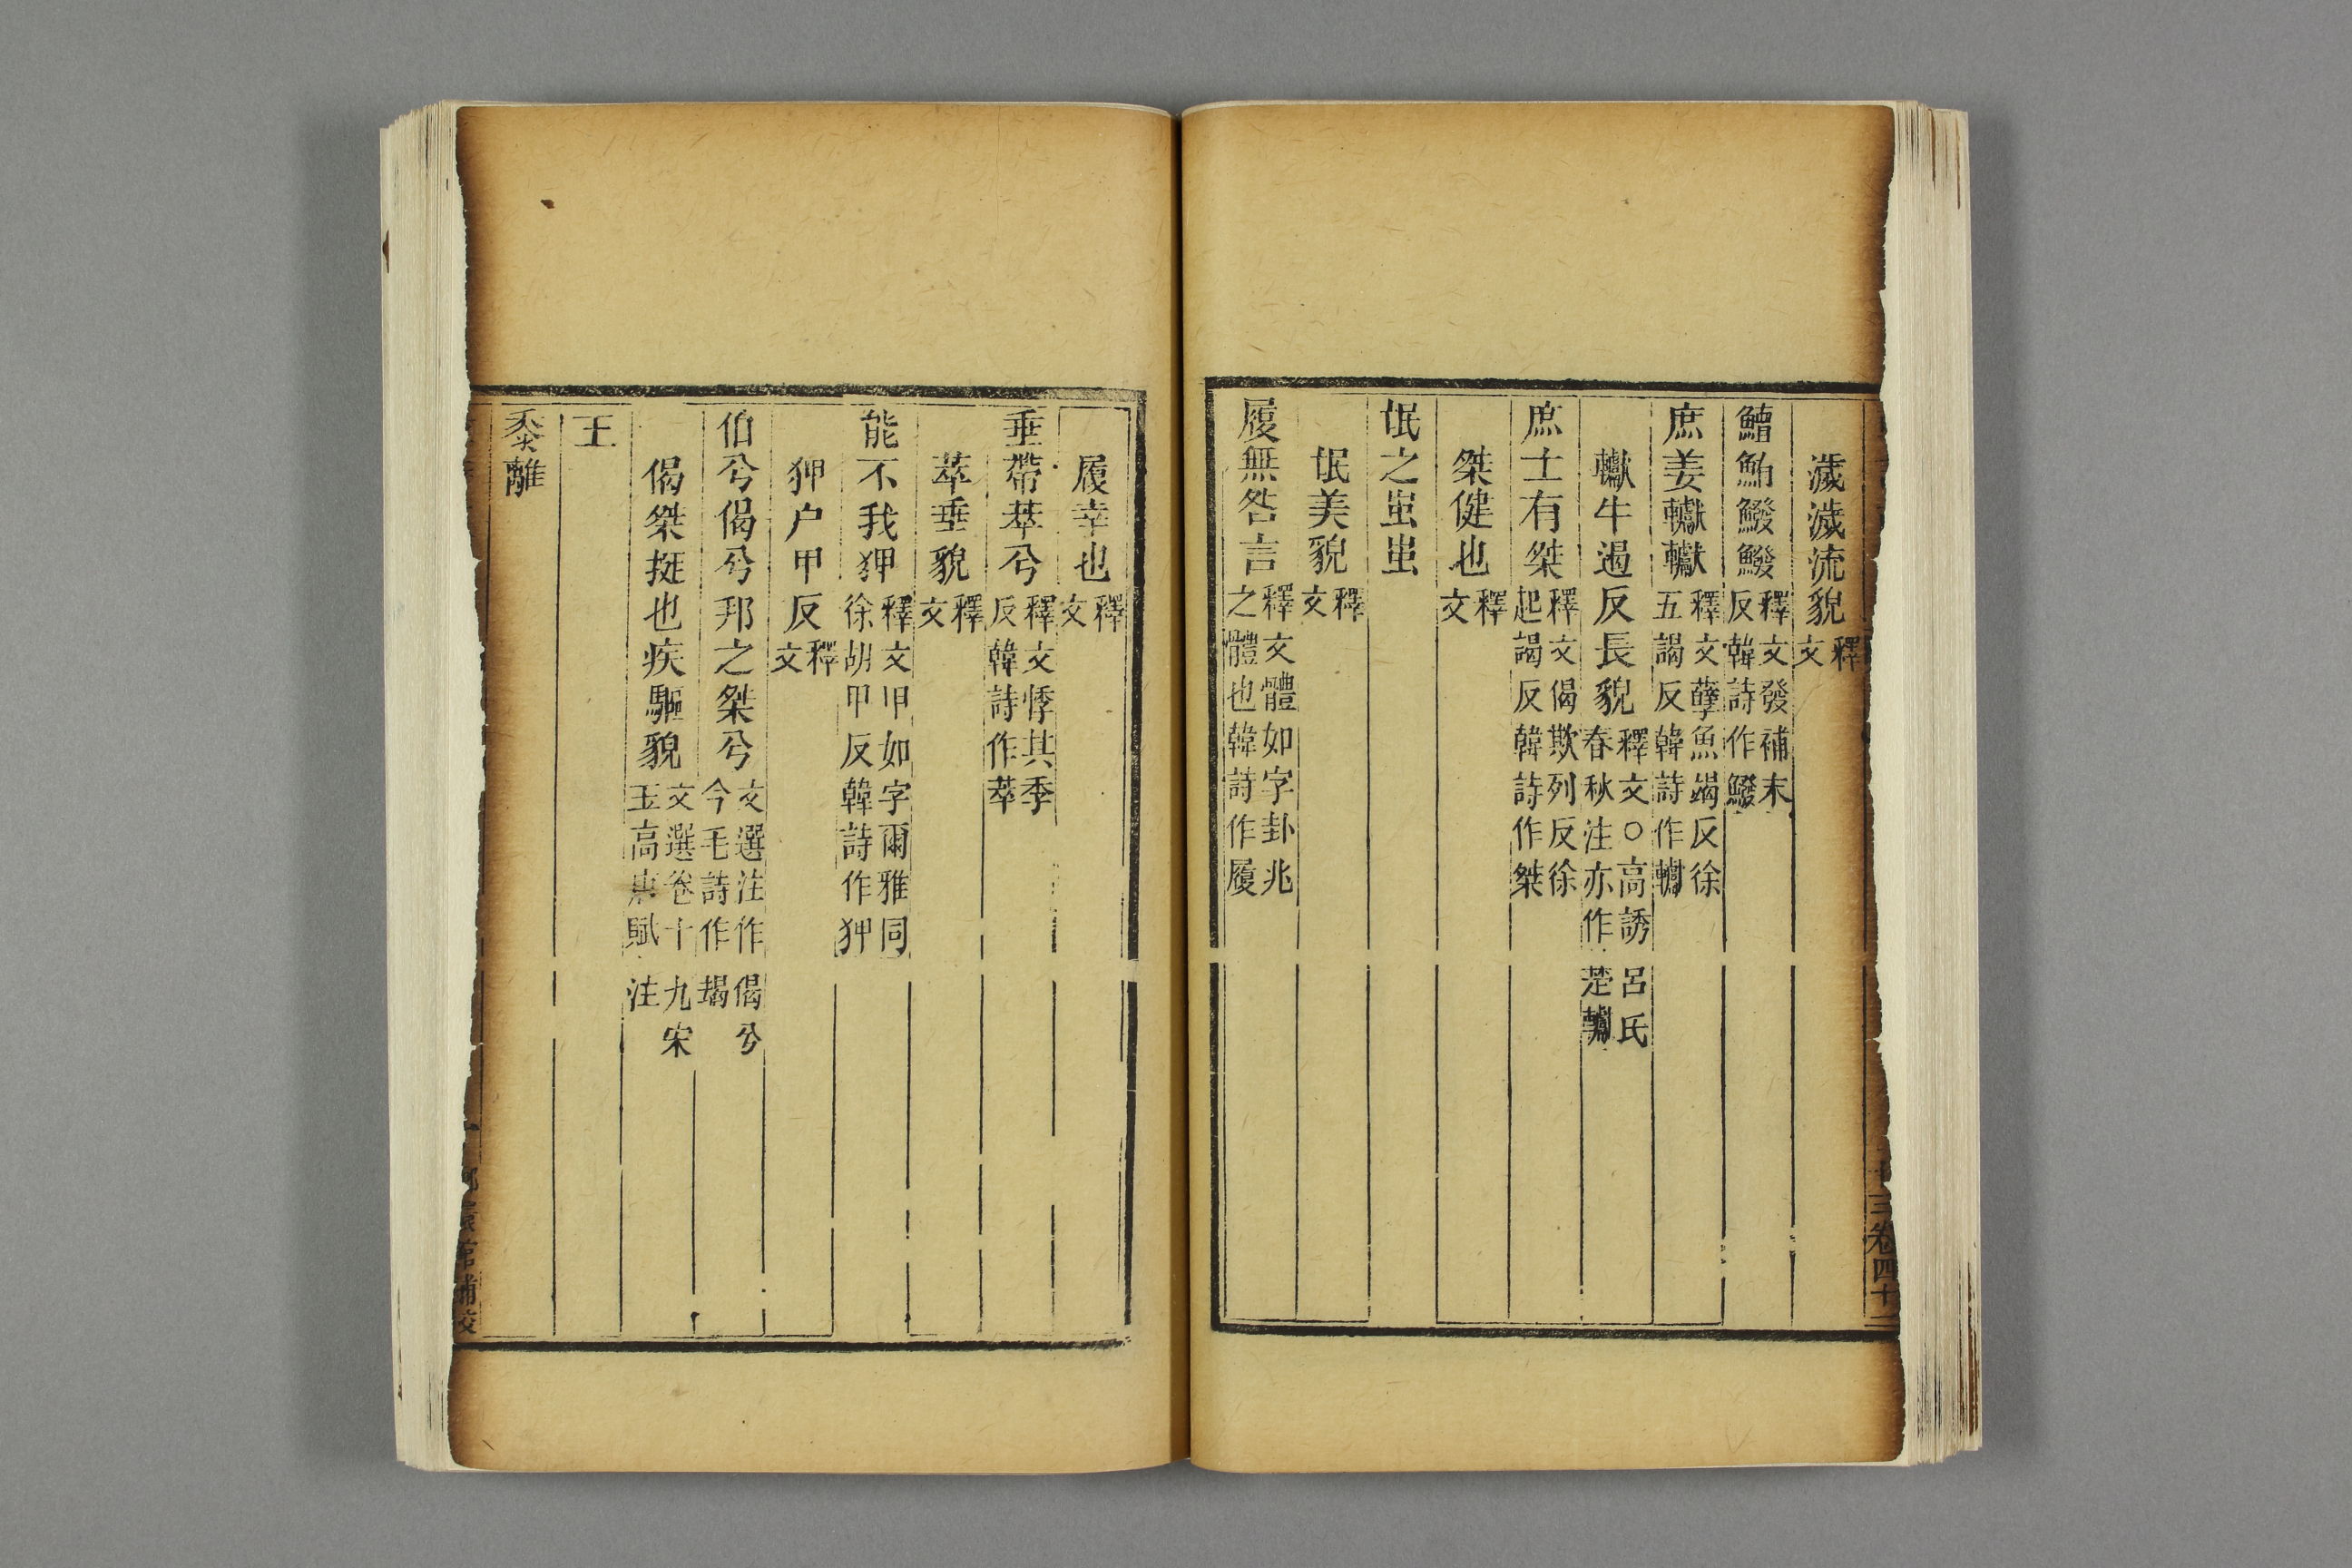 濊濊流貌釋文
鱣鮪鱍鱍釋文發補末反韓詩作鱍
庶姜轥轥釋文孽魚竭反徐五謁反韓詩作
牛遏反長貌釋文○高誘呂氏春秋注亦作
庶士有桀釋文偈欺列反徐起謁反韓詩作桀
桀健也釋文
氓之蚩蚩
氓美貌釋文
履無咎言釋文體如字卦兆之體也韓詩作履
三卷四十二
履幸也釋文
垂帶萃兮釋文悸其季反韓詩作萃
萃垂貌釋文
能不我狎釋文甲如字爾雅同徐胡甲反韓詩作狎
狎户甲反釋文
伯兮偈兮邦之桀兮文選注作偈兮今毛詩作朅
偈桀挺也疾驅貌文選卷十九宋玉高唐賦注
王
黍離
館補校